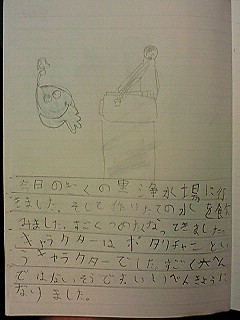 今日のぼくの里浄水場に行
きました。そして作りたての水を飲
みました。すごくつめたくなってきました。
キャラクターはポタリチャンとい
うキャラクターでした。すごく大へん
ではないそうです。いいべんきょうに
なりました。